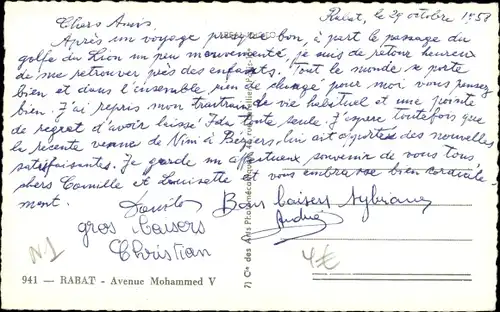 Rabat, le 29 octobre 1958
Chers Amis
Après un voyage presque bon, à part le passage du
golfe du Lion un peu mouvementé, je suis de retour heureux
de me retrouver près des enfants. Tout le monde se porte
bien et dans l'ensemble rien de changé pour moi vous pensez
bien. J'ai repris mon traintrain de vie habituel et une pointe
de regret d'avoir laissé Ida toute seule. J'espère toutefois que
la récente venue de Nini à Beziers, lui ait apporté des nouvelles
satisfaisantes. Je garde un affectueux souvenir de vous tous
chers Camille et Louisette et vous embrasse bien cordiale
ment.
Bons baisers
André
gros baisers
Christian
N1
4€
941 — RABAT - Avenue Mohammed V
Cie des Arts Photomécaniques